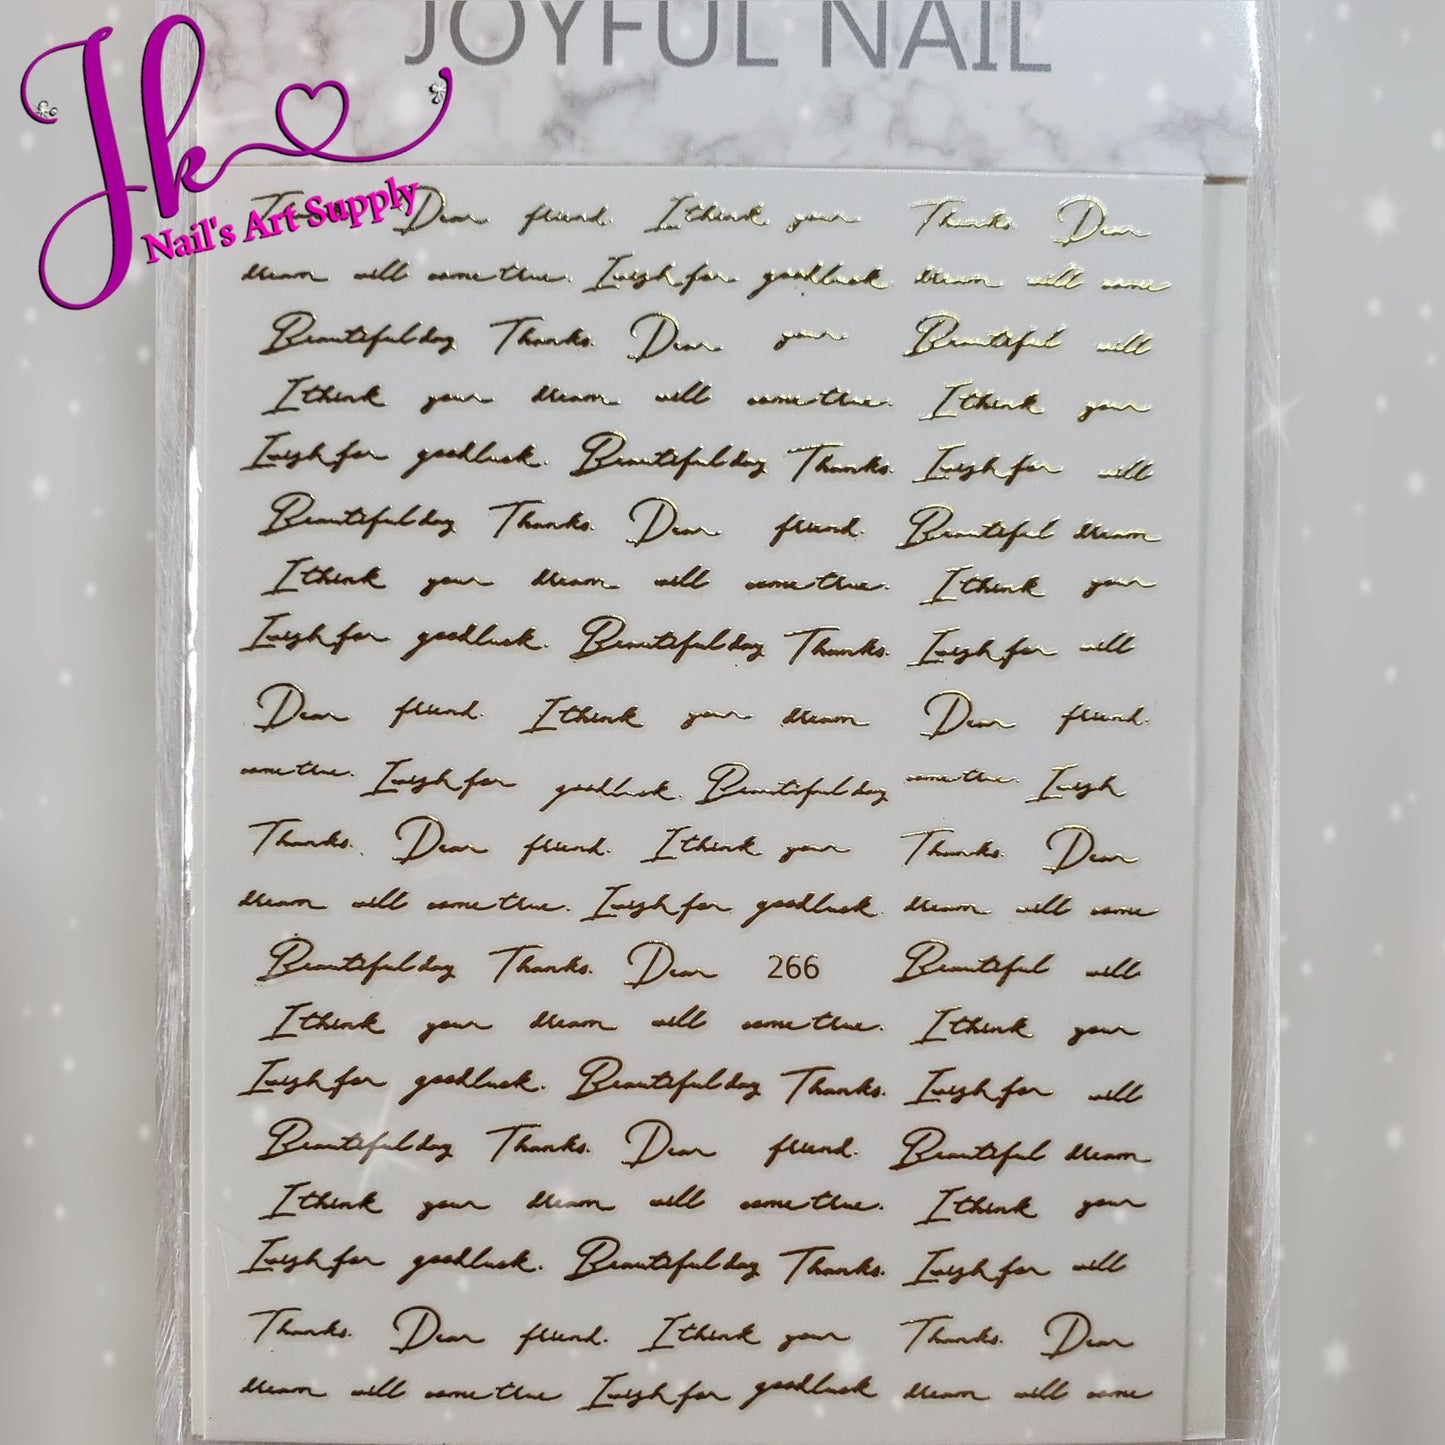 JOYFUL NAIL
Jk
Nail's Art Supply
Dear friend. I think your Thanks. Dear
dream will come true. I wish for goodluck. dream will come
Beautiful day Thanks. Dear your Beautiful will
I think your dream will come true. I think your
I wish for goodluck. Beautiful day Thanks. I wish for will
Beautiful day Thanks. Dear friend. Beautiful dream
I think your dream will come true. I think your
I wish for goodluck. Beautiful day Thanks. I wish for will
Dear friend. I think your dream Dear friend.
come true. I wish for goodluck. Beautiful day come true. I wish
Thanks. Dear friend. I think your Thanks. Dear
dream will come true. I wish for goodluck. dream will come
Beautiful day Thanks. Dear 266 Beautiful will
I think your dream will come true. I think your
I wish for goodluck. Beautiful day Thanks. I wish for will
Beautiful day Thanks. Dear friend. Beautiful dream
I think your dream will come true. I think your
I wish for goodluck. Beautiful day Thanks. I wish for will
Thanks. Dear friend. I think your Thanks. Dear
dream will come true I wish for goodluck dream will come